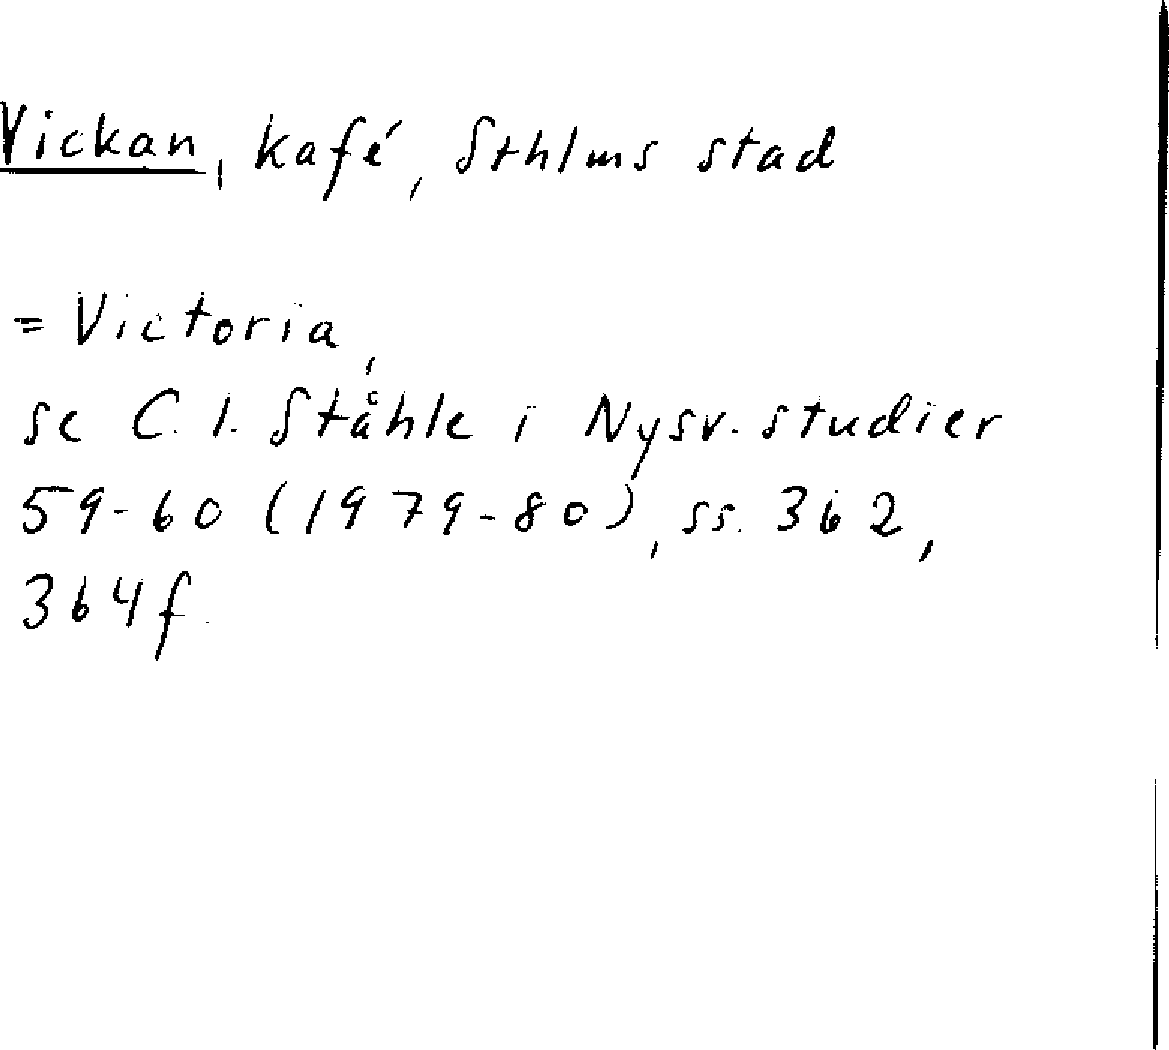 Vickan, kafé, Sthlms stad
= Victoria,
se C. I. Ståhle i Nysv. studier
59-60 (1979-80), ss. 362,
364f.